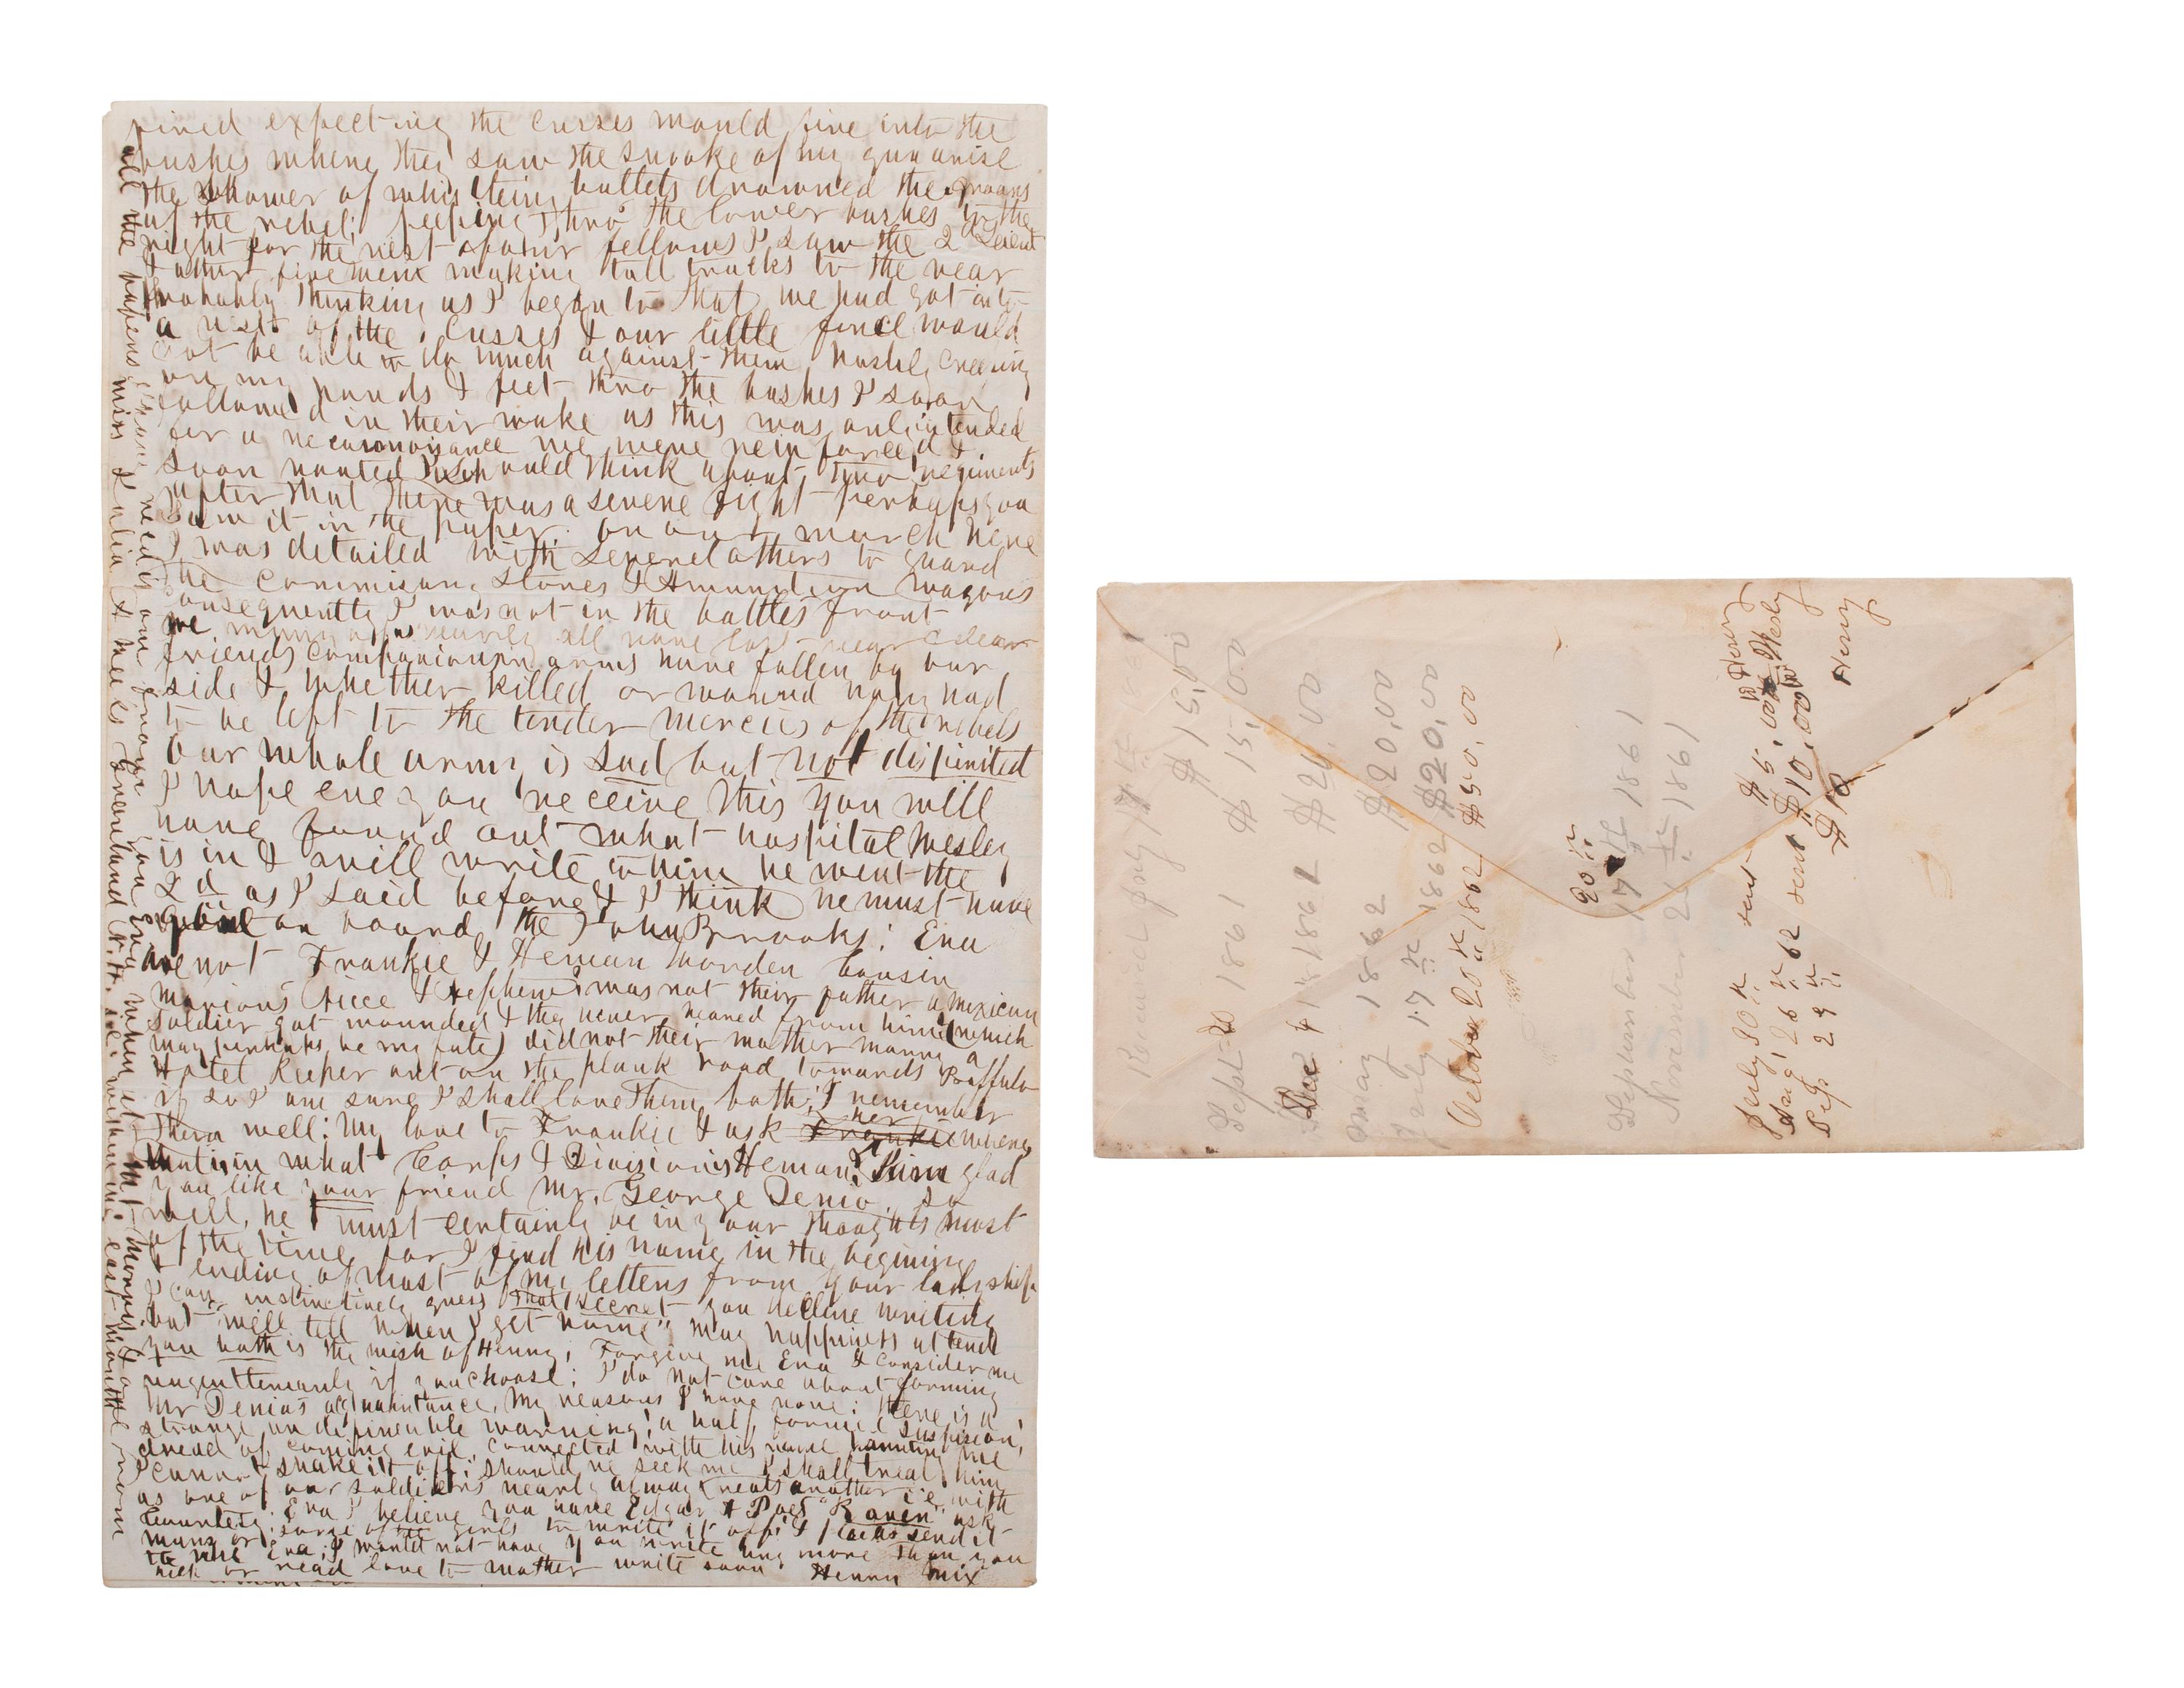 fired expecting the cusses would fire into the
bushes where they saw the smoke of my gun arise
the shower of whistleing bullets drowned the groans
of the rebel; peeping thro' the lower bushes in the
night for the rest of our fellows I saw the 2d Leieut
& other five men making tall tracks to the rear
probably thinking as I began to that we had got into
a nest of the cusses & our little force would
not be able to do much against them hastily creeping
on my hands & feet thro the bushes I soon
followed in their wake as this was only intended
for a reconnoisance we were reinforced &
soon routed I should think about two regiments
after that there was a severe fight perhaps you
saw it in the paper. on our march here
I was detailed with severel others to guard
the commisary stores & Amunition wagons
consequently I was not in the battles front
we many of us nearly all have lost near & dear
friends companions in arms have fallen by our
side & whether killed or wound many had
to be left to the tender mercies of the rebels
Our whole army is sad but not dispirited
I hope ere you receive this you will
have found out what hospital Wesley
is in I will write to him he went the
2d as I said before & I think he must have
on board the John Brooks; Eva
are not Frankie & Heman Worden Cousin
Marion's niece & Nephew? was not their father a Mexican
soldier got wounded & they never heared from him (which
may perhaps be my fate) did not their mother marry a
Hotel Keeper out on the plank road towards Buffulo
if so I am sure I shall love them both; I remember
them well: My love to Frankie & ask Frankie her where
that is in what Corps & Division is Heman? I am glad
you like your friend Mr. George Denio so
well, he must certainly be in your thoughts most
of the time for I find his name in the begining
& ending of most of my letters from your ladyship
I can instinctively guess that secret you decline writing
but "will tell when I get home"; may happiness attend
you both is the wish of Henry; Forgive me Eva & consider me
ungentlemanly if you choose; I do not care about forming
Mr Denio's acquaintance, My reasons I have none; there is a
strange undefineable warning! a half formed suspision!
dread of coming evil, connected with his name haunting me
I cannot shake it off; should he seek me I shall treat him
as one of our soldiers nearly alway treats another i.e. with
Courtesy; Eva I believe you have Edgar A Poe's "Raven" ask
Mary or some of the girls to write it off; & please send it
to me Eva, I would not have you write any more than you
or read love to mother write soon Henry Mix
all the papers
miss Julia A
Greenland N.H.
Eva when it
Received July 17th 1861 $15,00
Sept 20 1861 $15,00
Dec 1862 $20,00
May 1862 $20,00
July 17th 1862 $20,00
October 20th 1862 $50,00
20th
September 17th 1861
November 21st 1861
July 30th sent $5,00 to Henry
Aug! 26th 62 sent $10,00 to Wesly
Sep 29th $10 Henry